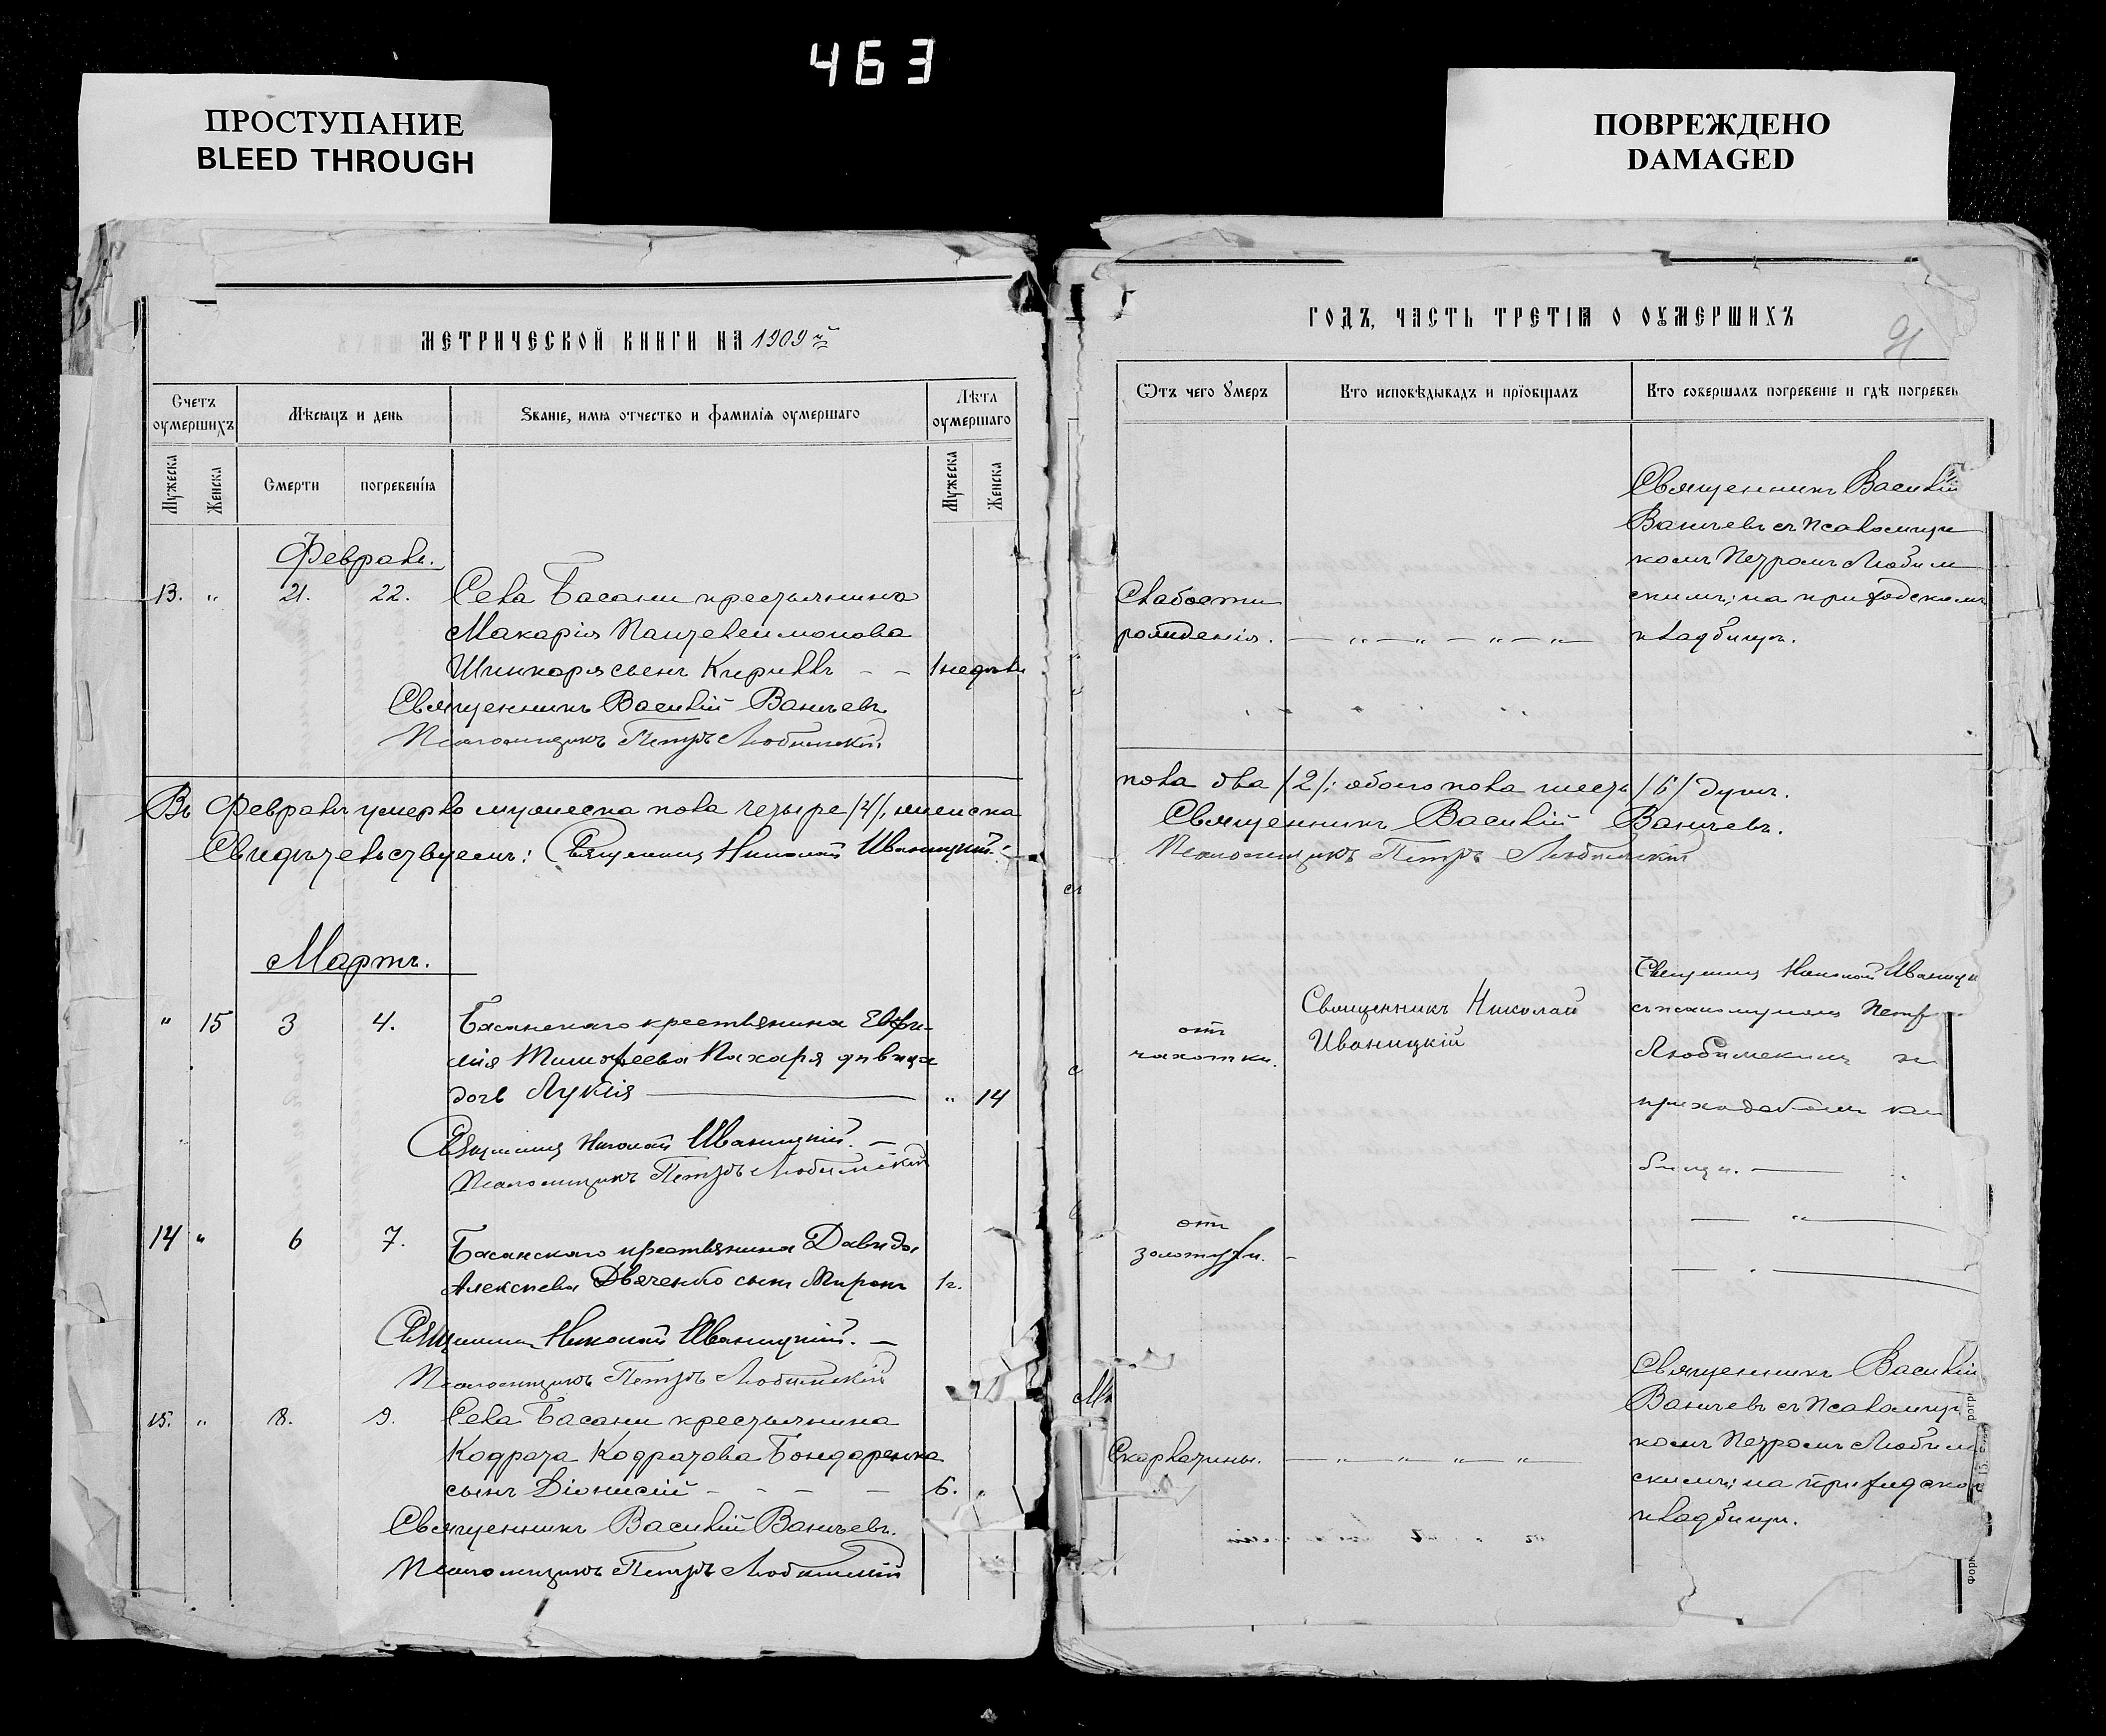 463
ПРОСТУПАНИЕ
BLEED THROUGH
ПОВРЕЖДЕНО
DAMAGED
МЕТРИЧЕСКОЙ КНИГИ НА 1909й
Счетъ оумершихъ
Мѣсяцъ и день
Званіе, имя отчество и фамилія оумершаго
Лѣта оумершаго
Мужеска
Женска
Смерти
погребенія
Мужеска
Женска
Февраль.
13. " 21. 22. Села Басани крестьянина
Макарія Пантелеимонова
Шинкаря сынъ Кириллъ - - 1 недѣли
Священникъ Василій Ваничевъ
Псаломщикъ Петръ Любимскій
Въ Февралѣ умерло мужеска пола четыре /4/, женска
Свидѣтельствуемъ: Священникъ Николай Иваницкій.
Мартъ.
" 15 3 4. Басанскаго крестьянина Евфи-
мія Тимофеева Пахаря дѣвица
дочь Лукія " 14
Священникъ Николай Иваницкій.
Псаломщикъ Петръ Любимскій
14 " 6 7. Басанскаго крестьянина Давида
Алексѣева Дьяченко сынъ Миронъ 1г.
Священникъ Николай Иваницкій.
Псаломщикъ Петръ Любимскій
15. " 8. 9. Села Басани крестьянина
Кодрата Кодратова Бондаренка
сынъ Діонисій - - - - 6. "
Священникъ Василій Ваничевъ.
Псаломщикъ Петръ Любимскій
ГОДЪ, ЧАСТЬ ТРЕТІЯ О ОУМЕРШИХЪ
Ѿтъ чего умеръ
Кто исповѣдывалъ и пріобщалъ
Кто совершалъ погребеніе и гдѣ погребен
Священникъ Василій
Ваничевъ съ псаломщи
комъ Петромъ Любим
Слабости скимъ; на приходскомъ
рожденія. — " — " — " — " кладбищѣ.
пола два /2/; обоего пола шесть /6/ душъ.
Священникъ Василій Ваничевъ.
Псаломщикъ Петръ Любимскій
Священникъ Николай Иваницк
Священникъ Николай съ псаломщикомъ Петр
отъ Иваницкій Любимскимъ н
чахотки.
приходскомъ кл
бищѣ.
отъ
золотухи.
Священникъ Василій
Ваничевъ съ псаломщи
комъ Петромъ Любим
Скарлатины. — " — " — " — " скимъ; на приходско
кладбищѣ.